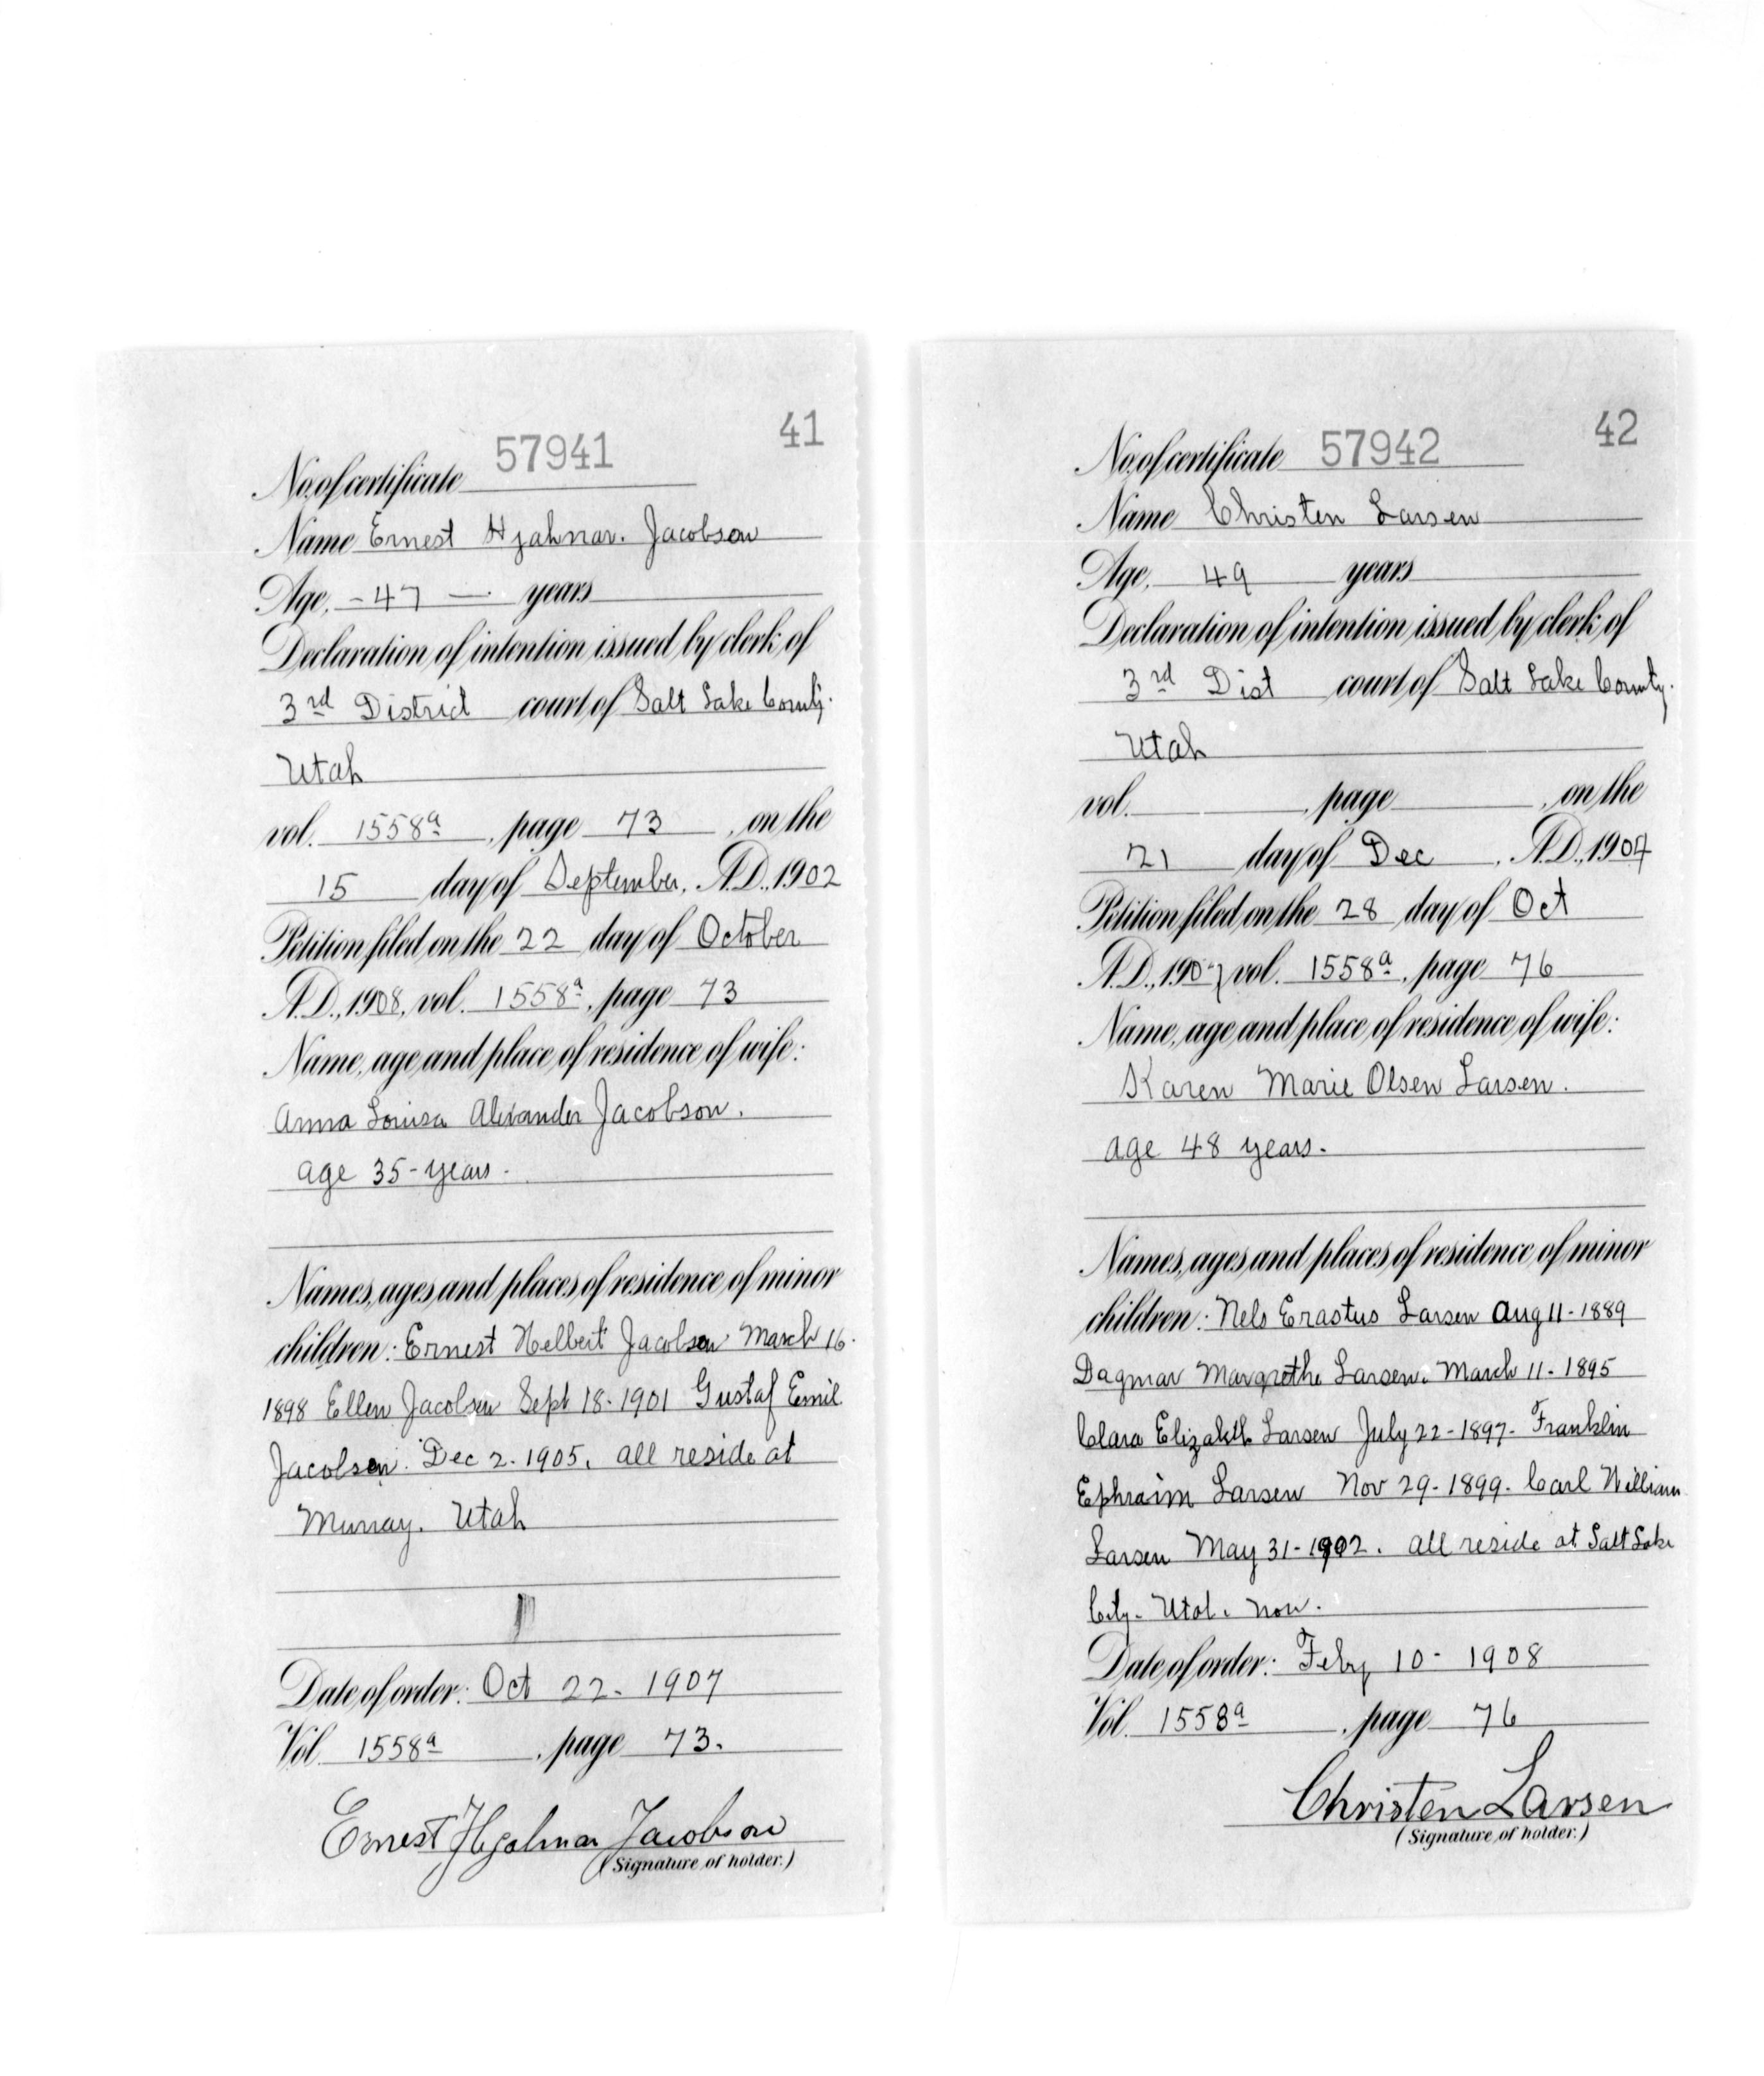 41
57941
No. of certificate
Name Ernest Hjalmar. Jacobson
Age, - 47 - years
Declaration of intention issued by clerk of
3rd District court of Salt Lake County.
Utah
vol. 1558a, page 73, on the
15 day of September, A.D., 1902
Petition filed on the 22 day of October
A.D., 1908, vol. 1558a, page 73
Name, age and place of residence of wife:
Anna Louisa Alexander Jacobson.
age 35-years.
Names, ages and places of residence of minor
children: Ernest Helbert Jacobson March 16.
1898 Ellen Jacobson Sept 18-1901 Gustaf Emil
Jacobson. Dec 2-1905, all reside at
Murray. Utah
Date of order: Oct 22-1907
Vol. 1558a, page 73.
Ernest Hjalmar Jacobson
(Signature of holder.)
42
No. of certificate 57942
Name Christen Larsen
Age, 49 years
Declaration of intention issued by clerk of
3rd Dist court of Salt Lake County.
Utah
vol. , page , on the
21 day of Dec, A.D., 1904
Petition filed on the 28 day of Oct
A.D., 1907, vol. 1558a, page 76
Name, age and place of residence of wife:
Karen Marie Olsen Larsen.
age 48 years.
Names, ages and places of residence of minor
children: Nels Erastus Larsen Aug 11-1889
Dagmar Margrethe Larsen. March 11-1895
Clara Elizabeth Larsen July 22-1897- Franklin
Ephraim Larsen Nov 29-1899. Carl William
Larsen May 31-1902. all reside at Salt Lake
City- Utah. now.
Date of order: Feby 10-1908
Vol. 1558a, page 76
Christen Larsen
(Signature of holder.)